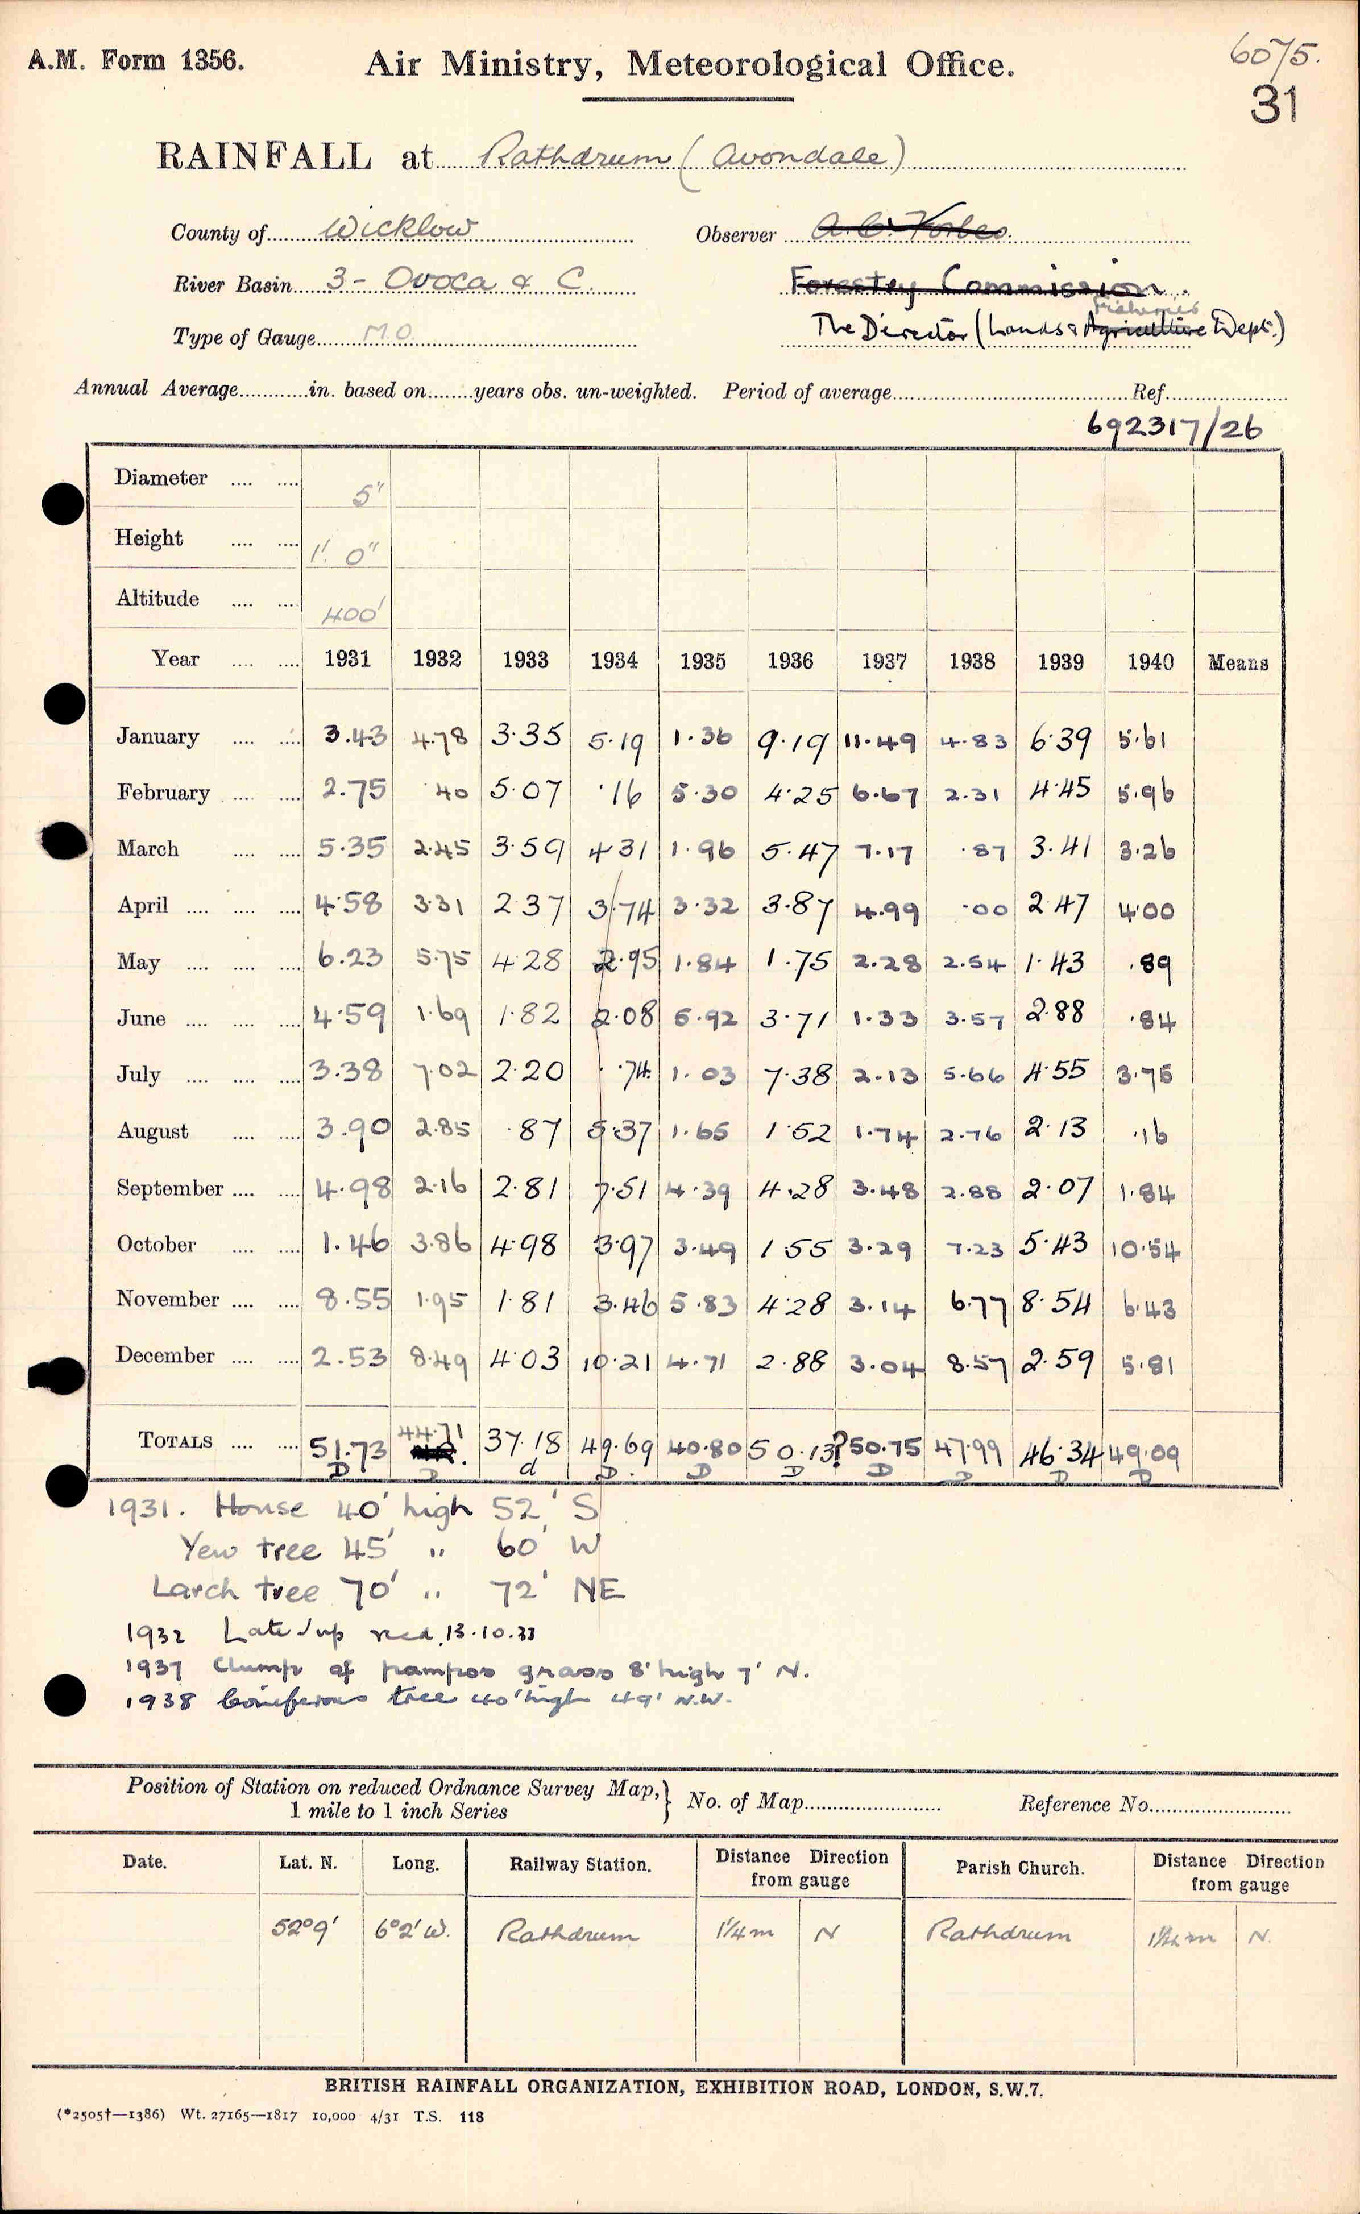 A.M. Form 1356. Air Ministry, Meteorological Office. 6075.
31
RAINFALL at Rathdrum (Avondale)
County of Wicklow Observer A. C. Forbes.
River Basin 3 - Ovoca & C. Forestry Commission.
Fisheries
Type of Gauge M.O. The Director (Lands & Agriculture Dept.)
Annual Average............in. based on........years obs. un-weighted. Period of average........................Ref.............
692317/26
Diameter .... .... 5"
Height .... .... 1' 0"
Altitude .... .... 400'
Year .... .... 1931 1932 1933 1934 1935 1936 1937 1938 1939 1940 Means
January .... .... 3.43 4.78 3.35 5.19 1.36 9.19 11.49 4.83 6.39 5.61
February .... .... 2.75 .40 5.07 .16 5.30 4.25 6.67 2.31 4.45 5.96
March .... .... 5.35 2.45 3.59 4.31 1.96 5.47 7.17 .87 3.41 3.26
April .... .... .... 4.58 3.31 2.37 3.74 3.32 3.87 4.99 .00 2.47 4.00
May .... .... .... 6.23 5.75 4.28 2.95 1.84 1.75 2.28 2.54 1.43 .89
June .... .... .... 4.59 1.69 1.82 2.08 5.92 3.71 1.33 3.57 2.88 .84
July .... .... .... 3.38 7.02 2.20 .74 1.03 7.38 2.13 5.66 4.55 3.75
August .... .... 3.90 2.85 .87 5.37 1.65 1.52 1.74 2.76 2.13 .16
September .... .... 4.98 2.16 2.81 7.51 4.39 4.28 3.48 2.88 2.07 1.84
October .... .... 1.46 3.86 4.98 3.97 3.49 1.55 3.29 7.23 5.43 10.54
November .... .... 8.55 1.95 1.81 3.46 5.83 4.28 3.14 6.77 8.54 6.43
December .... .... 2.53 8.49 4.03 10.21 4.71 2.88 3.04 8.57 2.59 5.81
TOTALS .... .... 51.73 44.71 37.18 49.69 40.80 50.13? 50.75 47.99 46.34 49.09
D D d D. D D D D D D
1931. House 40' high 52' S
Yew tree 45' " 60' W
Larch tree 70' " 72' NE
1932 Late up recd. 13.10.33
1937 Clump of pampas grass 8' high 7' N.
1938 Coniferous tree 40' high 49' N.W.
Position of Station on reduced Ordnance Survey Map, } No. of Map........................ Reference No.........................
1 mile to 1 inch Series
Date. Lat. N. Long. Railway Station. Distance Direction from gauge Parish Church. Distance Direction from gauge
52°9' 6°2' W. Rathdrum 1¼ m N Rathdrum 1¼ m N.
BRITISH RAINFALL ORGANIZATION, EXHIBITION ROAD, LONDON, S.W.7.
(*2505†—1386) Wt. 27165—1817 10,000 4/31 T.S. 118